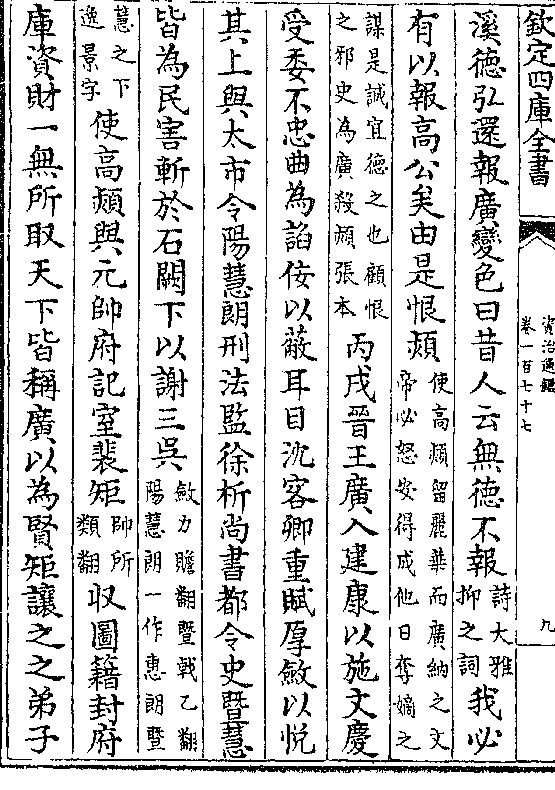 欽定四庫全書
資治通鑑
卷一百七十七
九
溪徳弘還報廣變色曰昔人云無徳不報詩大雅抑之詞我必
有以報高公矣由是恨熲使高熲留麗華而廣納之文帝必怒安得成他日奪嫡之
謀是誠宜徳之也顧恨之邪史為廣殺熲張本丙戌晉王廣入建康以施文慶
受委不忠曲為諂佞以蔽耳目沈客卿重賦厚斂以悦
其上與太市令陽慧朗刑法監徐析尚書都令史暨慧
皆為民害斬於石闕下以謝三吳斂力贍翻暨戟乙翻陽慧朗一作惠朗暨
慧之下逸景字使高熲與元帥府記室裴矩帥所類翻收圖籍封府
庫資財一無所取天下皆稱廣以為賢矩讓之之弟子